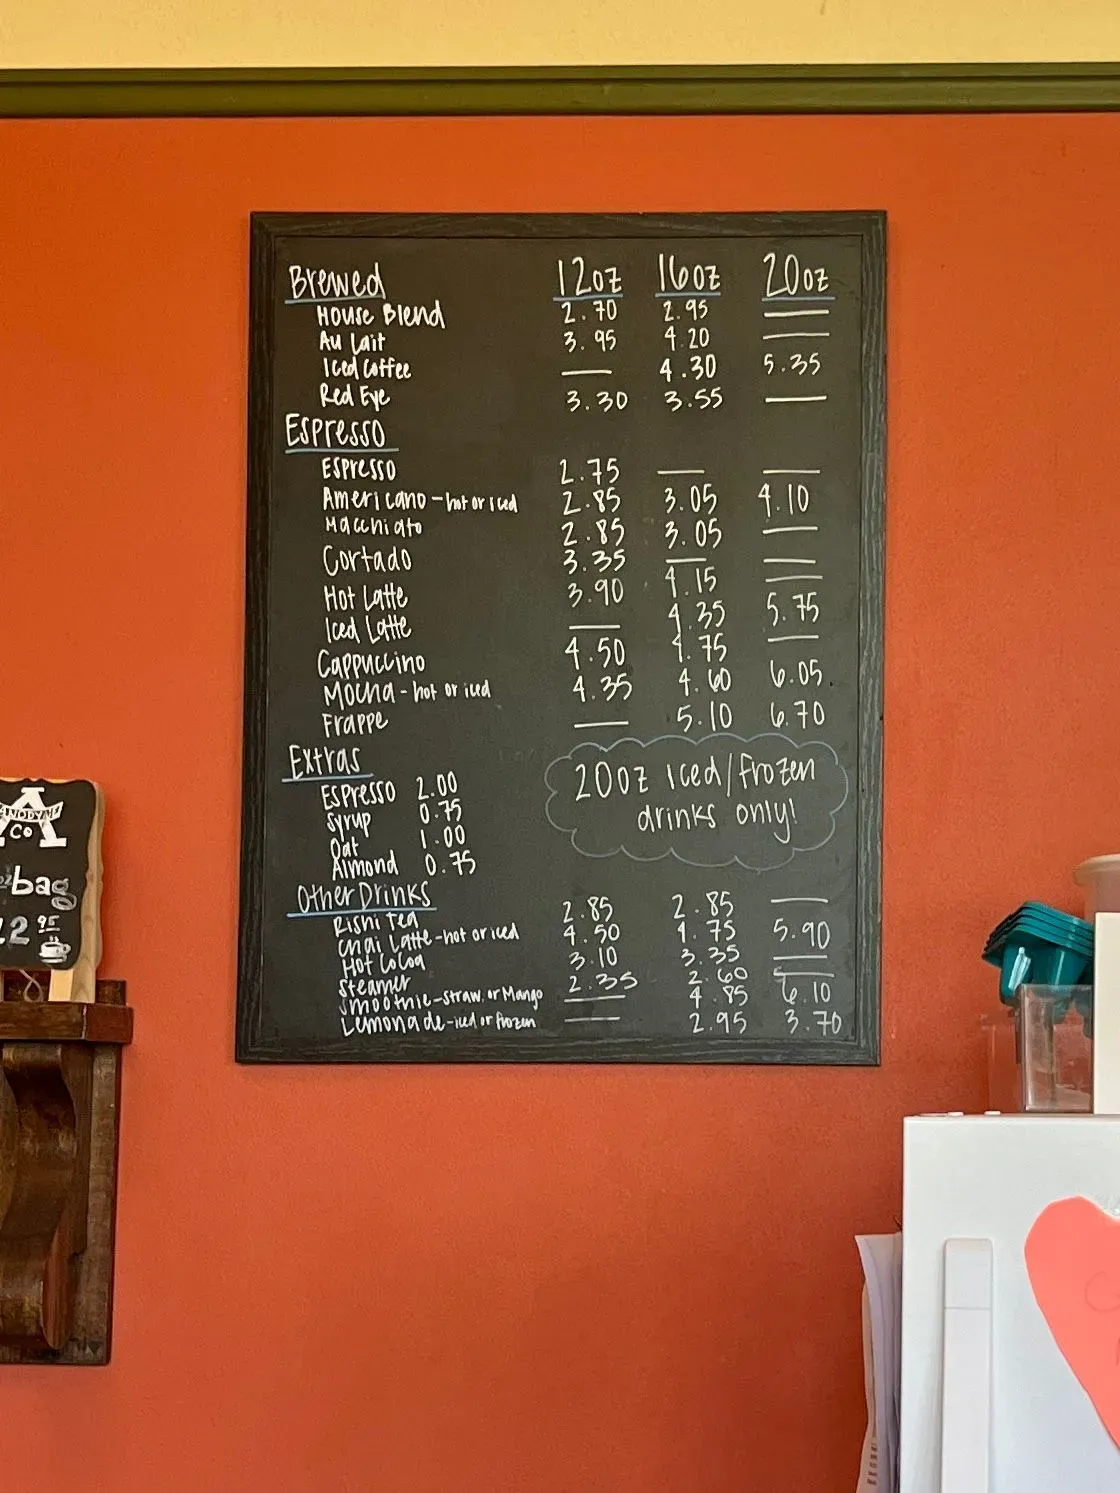 Brewed 12oz 16oz 20oz
House Blend 2.70 2.95 —
Au Lait 3.95 4.20 —
Iced Coffee — 4.30 5.35
Red Eye 3.30 3.55 —
Espresso
Espresso 2.75 — —
Americano - hot or iced 2.85 3.05 4.10
Macchiato 2.85 3.05 —
Cortado 3.35 — —
Hot Latte 3.90 4.15 —
Iced Latte — 4.35 5.75
Cappuccino 4.50 4.75 —
Mocha - hot or iced 4.35 4.60 6.05
Frappe — 5.10 6.70
Extras
Espresso 2.00
Syrup 0.75
Oat 1.00
Almond 0.75
20oz iced/frozen
drinks only!
Other Drinks
Rishi Tea 2.85 2.85 —
Chai Latte - hot or iced 4.50 4.75 5.90
Hot Cocoa 3.10 3.35 —
Steamer 2.35 2.60 —
Smoothie - straw. or Mango — 4.85 6.10
Lemonade - iced or frozen — 2.95 3.70
ANODYNE
Co
bag